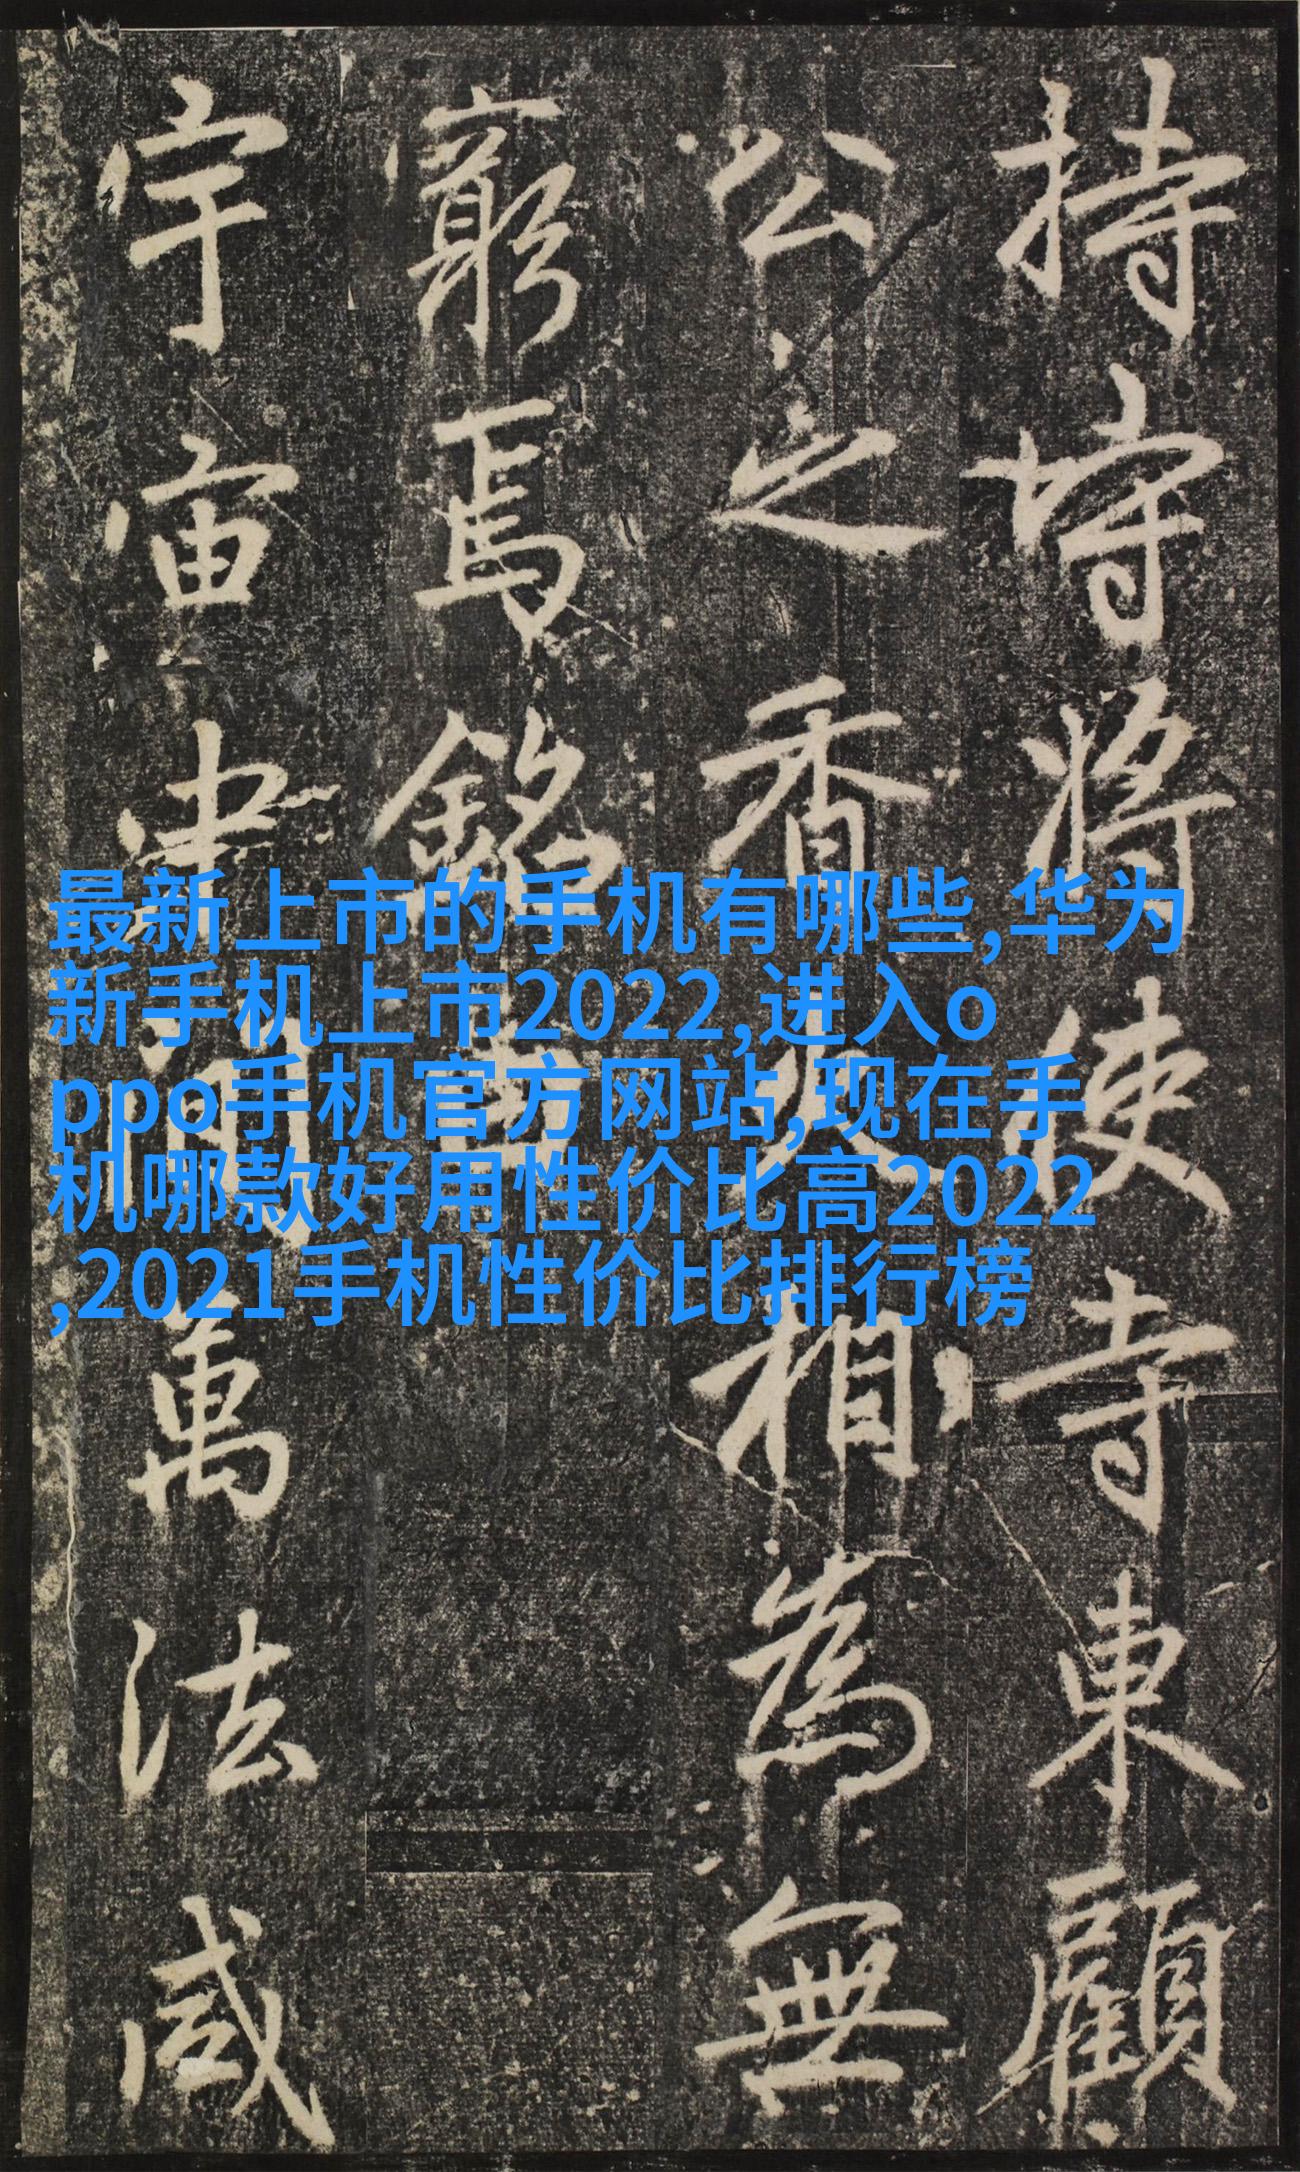 持將使寺東顧
公之香火相為無
窮焉銘曰
宇宙萬法咸
最新上市的手机有哪些,华为
新手机上市2022,进入o
ppo手机官方网站,现在手
机哪款好用性价比高2022
,2021手机性价比排行榜